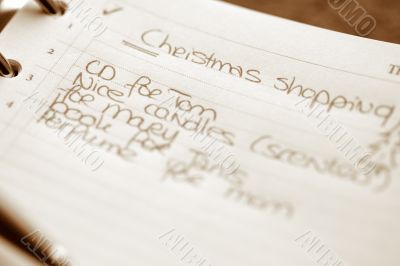 Christmas shopping
CD for Tom
Nice candles (scented)
for mary
Book for
Perfume for mom
1
2
3
4
Th
ALBUMO